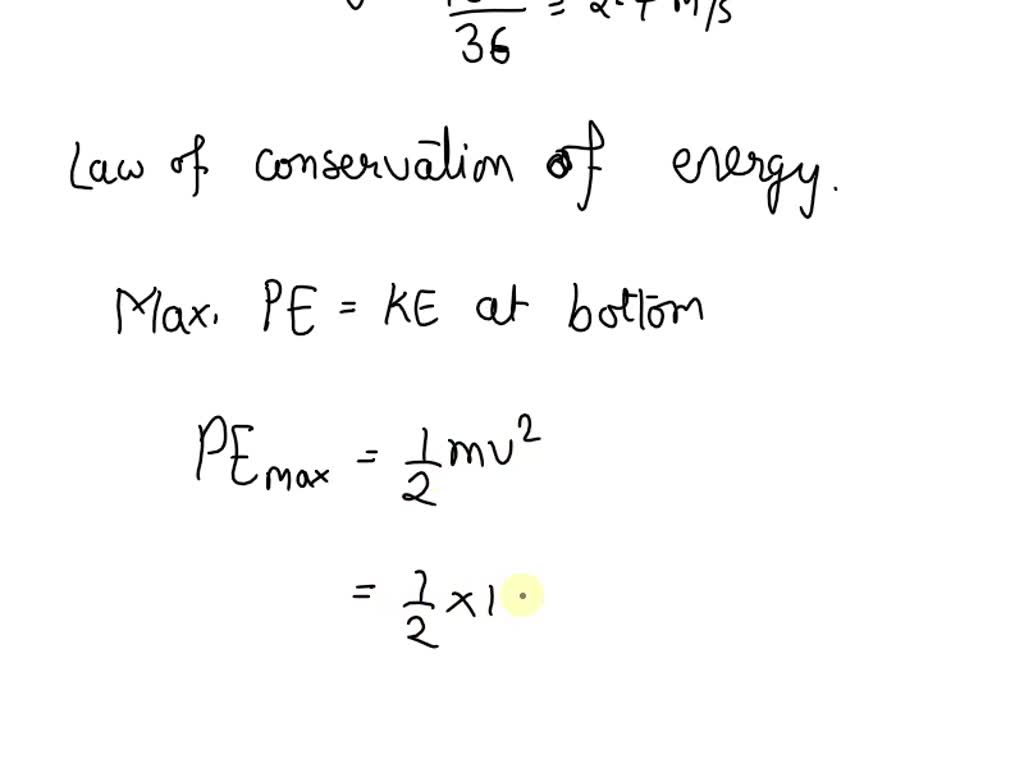 36 = m/s
Law of conservation of energy.
Max. PE = KE at bottom
PE max = 1/2 mv²
= 1/2 × 1